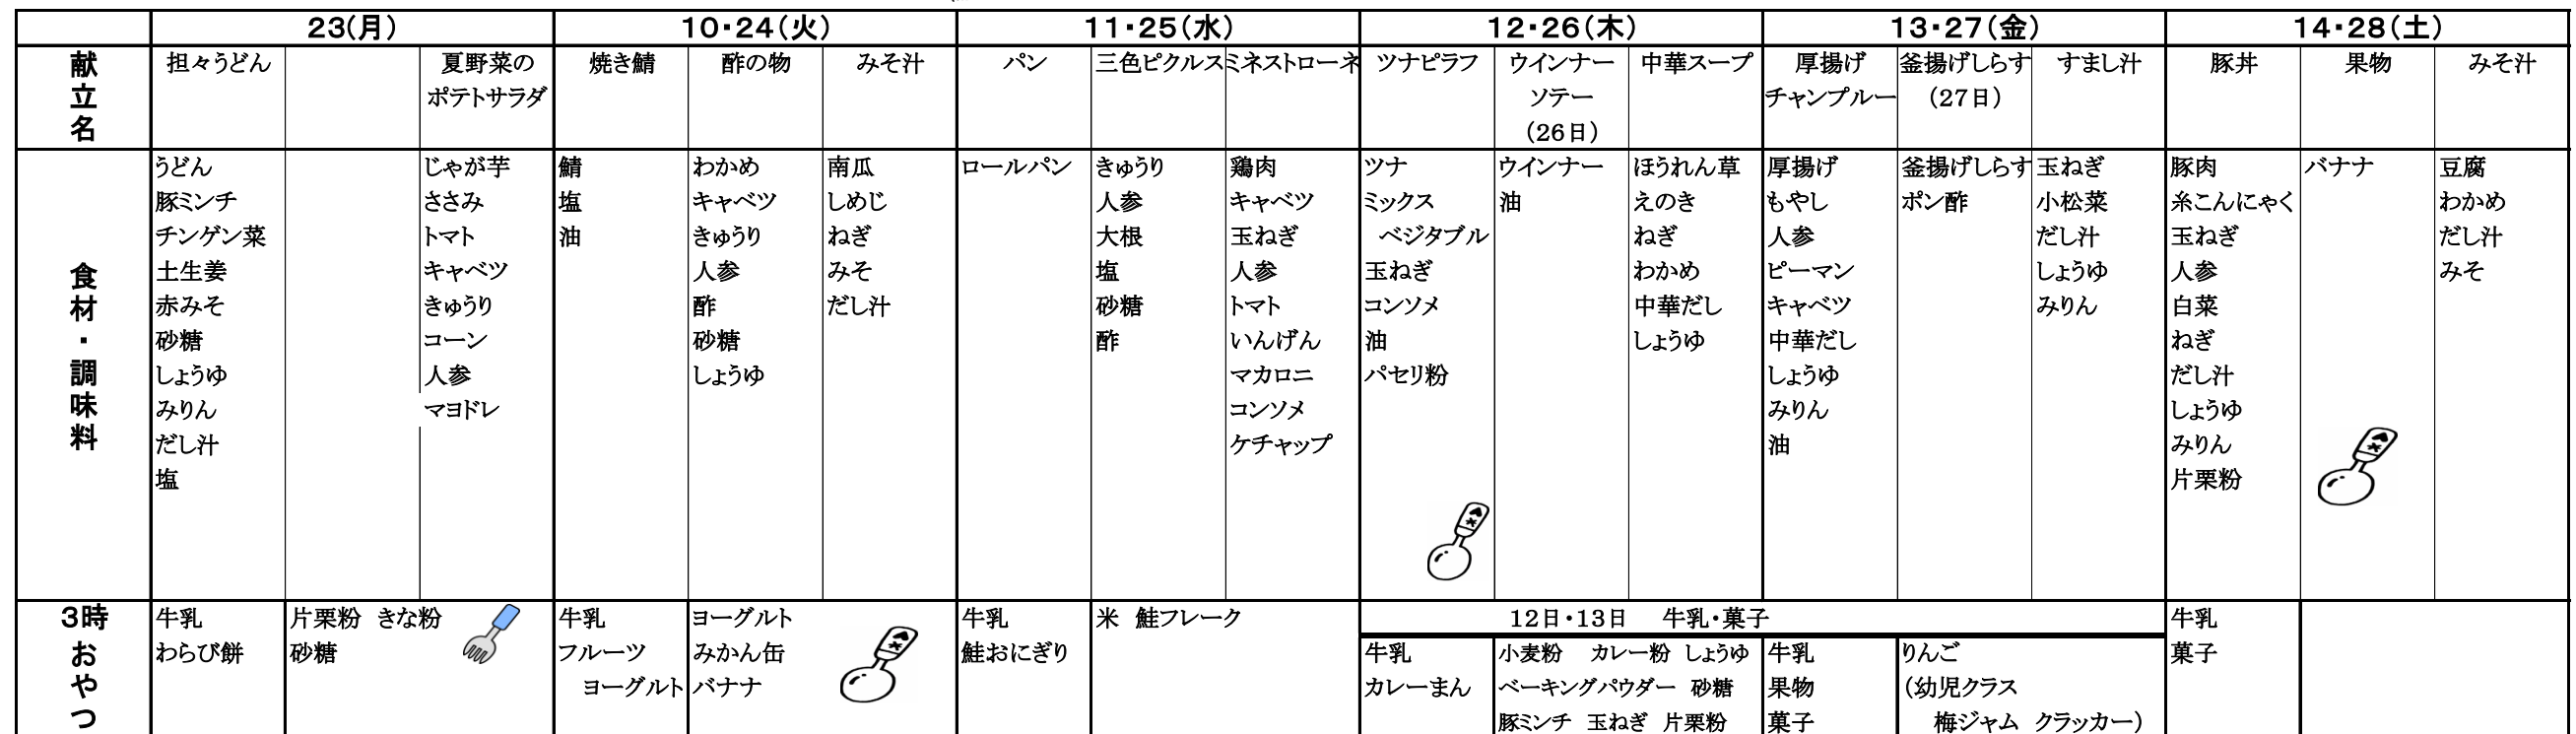 23(月) 10・24(火) 11・25(水) 12・26(木) 13・27(金) 14・28(土)
献立名
担々うどん
夏野菜の
ポテトサラダ
焼き鯖
酢の物
みそ汁
パン
三色ピクルス
ミネストローネ
ツナピラフ
ウインナー
ソテー
(26日)
中華スープ
厚揚げ
チャンプルー
釜揚げしらす
(27日)
すまし汁
豚丼
果物
みそ汁
食材・調味料
うどん
豚ミンチ
チンゲン菜
土生姜
赤みそ
砂糖
しょうゆ
みりん
だし汁
塩
じゃが芋
ささみ
トマト
キャベツ
きゅうり
コーン
人参
マヨドレ
鯖
塩
油
わかめ
キャベツ
きゅうり
人参
酢
砂糖
しょうゆ
南瓜
しめじ
ねぎ
みそ
だし汁
ロールパン
きゅうり
人参
大根
塩
砂糖
酢
鶏肉
キャベツ
玉ねぎ
人参
トマト
いんげん
マカロニ
コンソメ
ケチャップ
ツナ
ミックス
ベジタブル
玉ねぎ
コンソメ
油
パセリ粉
ウインナー
油
ほうれん草
えのき
ねぎ
わかめ
中華だし
しょうゆ
厚揚げ
もやし
人参
ピーマン
キャベツ
中華だし
しょうゆ
みりん
油
釜揚げしらす
ポン酢
玉ねぎ
小松菜
だし汁
しょうゆ
みりん
豚肉
糸こんにゃく
玉ねぎ
人参
白菜
ねぎ
だし汁
しょうゆ
みりん
片栗粉
バナナ
豆腐
わかめ
だし汁
みそ
3時おやつ
牛乳
わらび餅
片栗粉 きな粉
砂糖
牛乳
フルーツ
ヨーグルト
ヨーグルト
みかん缶
バナナ
牛乳
鮭おにぎり
米 鮭フレーク
12日・13日 牛乳・菓子
牛乳
カレーまん
小麦粉 カレー粉 しょうゆ
ベーキングパウダー 砂糖
豚ミンチ 玉ねぎ 片栗粉
牛乳
果物
菓子
りんご
(幼児クラス
梅ジャム クラッカー)
牛乳
菓子